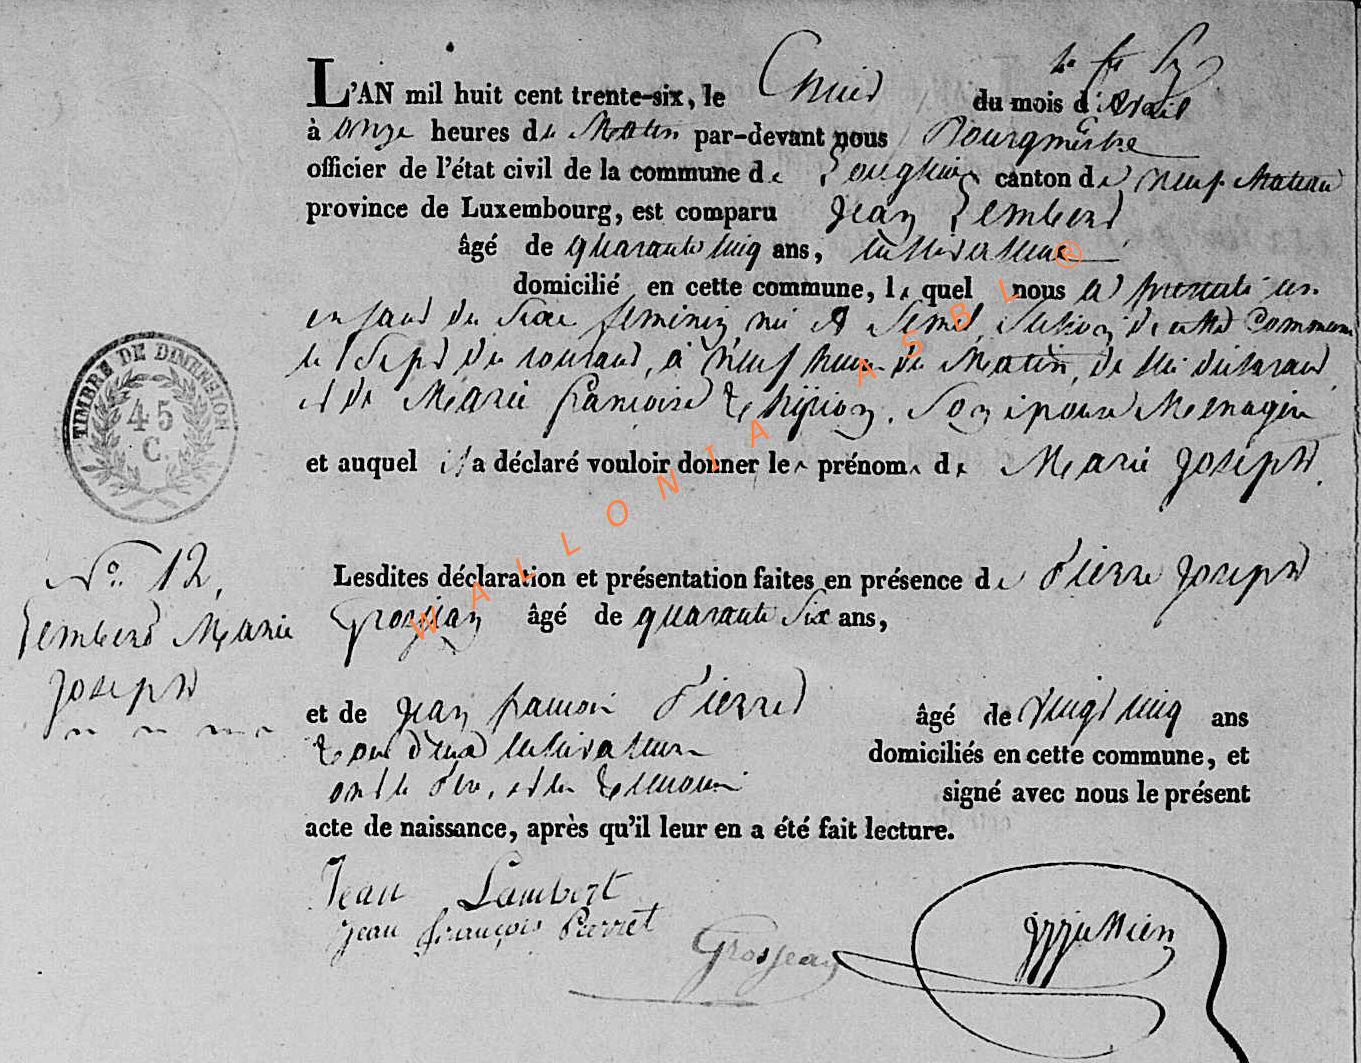 L'AN mil huit cent trente-six, le huit du mois d'avril
à onze heures du Matin par-devant nous Bourgmestre
officier de l'état civil de la commune de Longlier canton de neufchateau
province de Luxembourg, est comparu Jean Lembert
âgé de quarante cinq ans, cultivateur
domicilié en cette commune, lequel nous a présenté un
enfant du sexe feminin né a Semel, Section de cette commune
le sept du courant, à neuf heures du Matin, de lui déclarant
et de Marie françoise son epouse Menagere
et auquel il a déclaré vouloir donner le prénom de Marie Joseph.
TIMBRE DE DIMENSION
45
C.
N° 12,
Lembert Marie
Joseph
Lesdites déclaration et présentation faites en présence de Pierre Joseph
Grosjean âgé de quarante six ans,
et de Jean francois Pierret âgé de vingt cinq ans
tous deux cultivateurs domiciliés en cette commune, et
ont le Pere, et les temoins signé avec nous le présent
acte de naissance, après qu'il leur en a été fait lecture.
Jean Lambert
Jean françois Pierret
Grosjean
WALLONIA ASBL ®